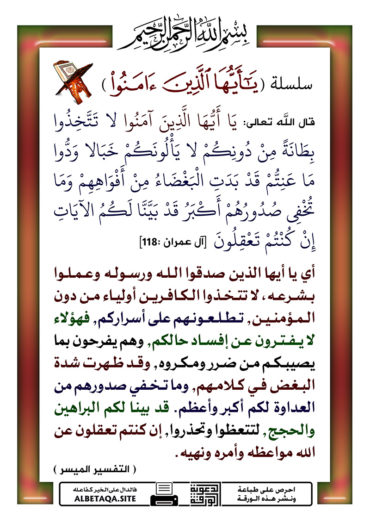 بسم الله الرحمن الرحيم
سلسلة ( يَـٰٓأَيُّهَا ٱلَّذِينَ ءَامَنُوا۟ )
قال الله تعالى: يَا أَيُّهَا الَّذِينَ آمَنُوا لا تَتَّخِذُوا
بِطَانَةً مِنْ دُونِكُمْ لا يَأْلُونَكُمْ خَبَالا وَدُّوا
مَا عَنِتُّمْ قَدْ بَدَتِ الْبَغْضَاءُ مِنْ أَفْوَاهِهِمْ وَمَا
تُخْفِي صُدُورُهُمْ أَكْبَرُ قَدْ بَيَّنَّا لَكُمُ الآيَاتِ
إِنْ كُنْتُمْ تَعْقِلُونَ [آل عمران :118]
أي يا أيها الذين صدقوا الله ورسوله وعملوا
بشرعه، لا تتخذوا الكافرين أولياء من دون
المؤمنين, تطلعونهم على أسراركم, فهؤلاء
لا يفترون عن إفساد حالكم, وهم يفرحون بما
يصيبكم من ضرر ومكروه, وقد ظهرت شدة
البغض في كلامهم, وما تخفي صدورهم من
العداوة لكم أكبر وأعظم. قد بينا لكم البراهين
والحجج, لتتعظوا وتحذروا, إن كنتم تعقلون عن
الله مواعظه وأمره ونهيه.
( التفسير الميسر )
احرص على طباعة
ونشر هذه الورقة
للدعوية
الورقة
فالدال على الخير كفاعله
ALBETAQA.SITE